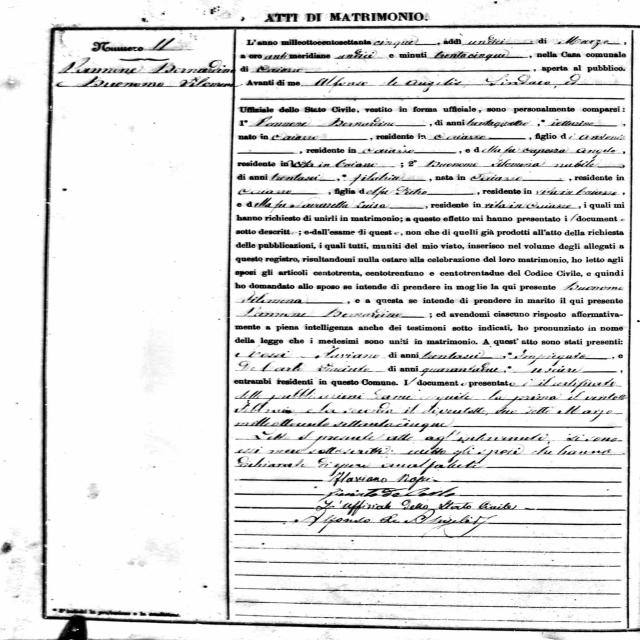 ATTI DI MATRIMONIO.
Numero 11
Pannone Bernardino
e Buonomo Filomena
L'anno milleottocentosettanta cinque, addì undici di Marzo,
a ore antimeridiane undici e minuti trentacinque, nella Casa comunale
di Caiazzo, aperta al pubblico.
Avanti di me Alfonso de Angelis, Sindaco, ed
Uffiziale dello Stato Civile, vestito in forma ufficiale, sono personalmente comparsi:
1° Pannone Bernardino, di anni trentaquattro,
nato in Caiazzo, residente in Caiazzo, figlio di Antonio
, residente in Caiazzo, e della fu Angela
residente in vita in Caiazzo; 2° Buonomo Filomena nubile
di anni trentasei, * filatrice, nata in Caiazzo, residente in
Caiazzo, figlia del fu Pietro, residente in vita in Caiazzo,
e della fu Luisa, residente in vita in Caiazzo, i quali mi
hanno richiesto di unirli in matrimonio; a questo effetto mi hanno presentato i l document o
sotto descritto; e dall'esame di questo, non che di quelli già prodotti all'atto della richiesta
delle pubblicazioni, i quali tutti, muniti del mio visto, inserisco nel volume degli allegati a
questo registro, risultandomi nulla ostare alla celebrazione del loro matrimonio, ho letto agli
sposi gli articoli centotrenta, centotrentuno e centotrentadue del Codice Civile, e quindi
ho domandato allo sposo se intende di prendere in moglie la qui presente Buonomo
Filomena, e a questa se intende di prendere in marito il qui presente
Pannone Bernardino; ed avendomi ciascuno risposto affermativa-
mente a piena intelligenza anche dei testimoni sotto indicati, ho pronunziato in nome
della legge che i medesimi sono uniti in matrimonio. A quest'atto sono stati presenti:
Flaviano di anni trentasei, * Impiegato, e
De Carlo Giacinto di anni quarantadue, * usciere,
entrambi residenti in questo Comune. Il document o presentato è il certificato
delle pubblicazioni eseguite la prima il ventotto
Febbraio e la seconda il sette Marzo
milleottocentosettantacinque
Letto il presente atto agl'intervenuti, si sono
essi meco sottoscritti eccetto gli sposi che hanno
dichiarato di essere analfabeti
Flaviano
Giacinto De Carlo
L'Uffiziale dello Stato Civile
Alfonso De Angelis